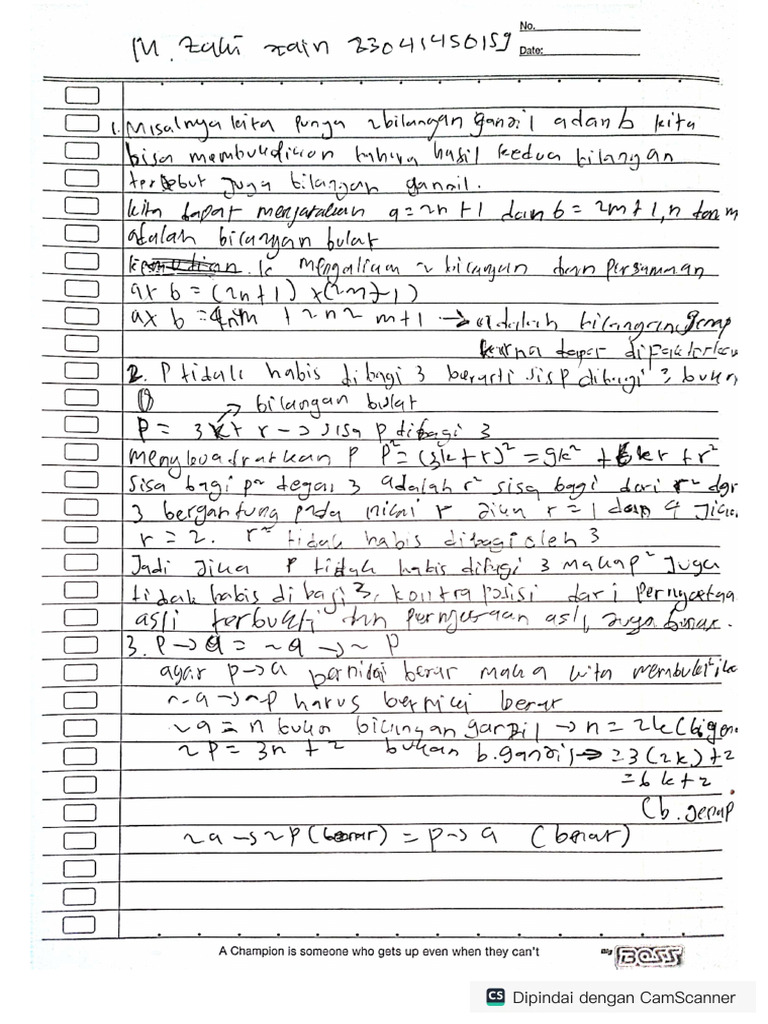 No.
M. Zaki zain 23041450159
Date:
1. Misalnya kita punya 2 bilangan ganjil a dan b kita
bisa membuktikan bahwa hasil kedua bilangan
tersebut juga bilangan ganjil.
kita dapat mengatakan a = 2n + 1 dan b = 2m + 1, n dan m
adalah bilangan bulat
mengalikan 2 bilangan dan persamaan
a x b = (2n+1) x (2m+1)
a x b = 4nm + 2n 2m + 1 → adalah bilangan genap
karna dapat difaktorkan
2. P tidak habis dibagi 3 berarti sis p dibagi 3 bukan
0
→ bilangan bulat
P = 3k + r → sisa p dibagi 3
mengkuadratkan P P² = (3k+r)² = 9k² + 6kr + r²
sisa bagi p² degan 3 adalah r² sisa bagi dari r² dgn
3 bergantung pada nilai r jika r = 1 dan 4 jika
r = 2. r² tidak habis dibagi oleh 3
Jadi Jika P tidak habis dibagi 3 maka p² juga
tidak habis dibagi 3, kontraposisi dari pernyataan
asli terbukti dan pernyataan asli juga benar.
3. P → q = ~q → ~P
agar p → q bernilai benar maka kita membuktika
~q → ~p harus bernilai benar
~q = n bukan bilangan ganjil → n = 2k (b.gen
~P = 3n + 2 bukan b.ganjil → = 3(2k) + 2
= 6k + 2
(b. genap
~q → ~P (benar) = p → q (benar)
A Champion is someone who gets up even when they can't
Big BOSS
CS Dipindai dengan CamScanner